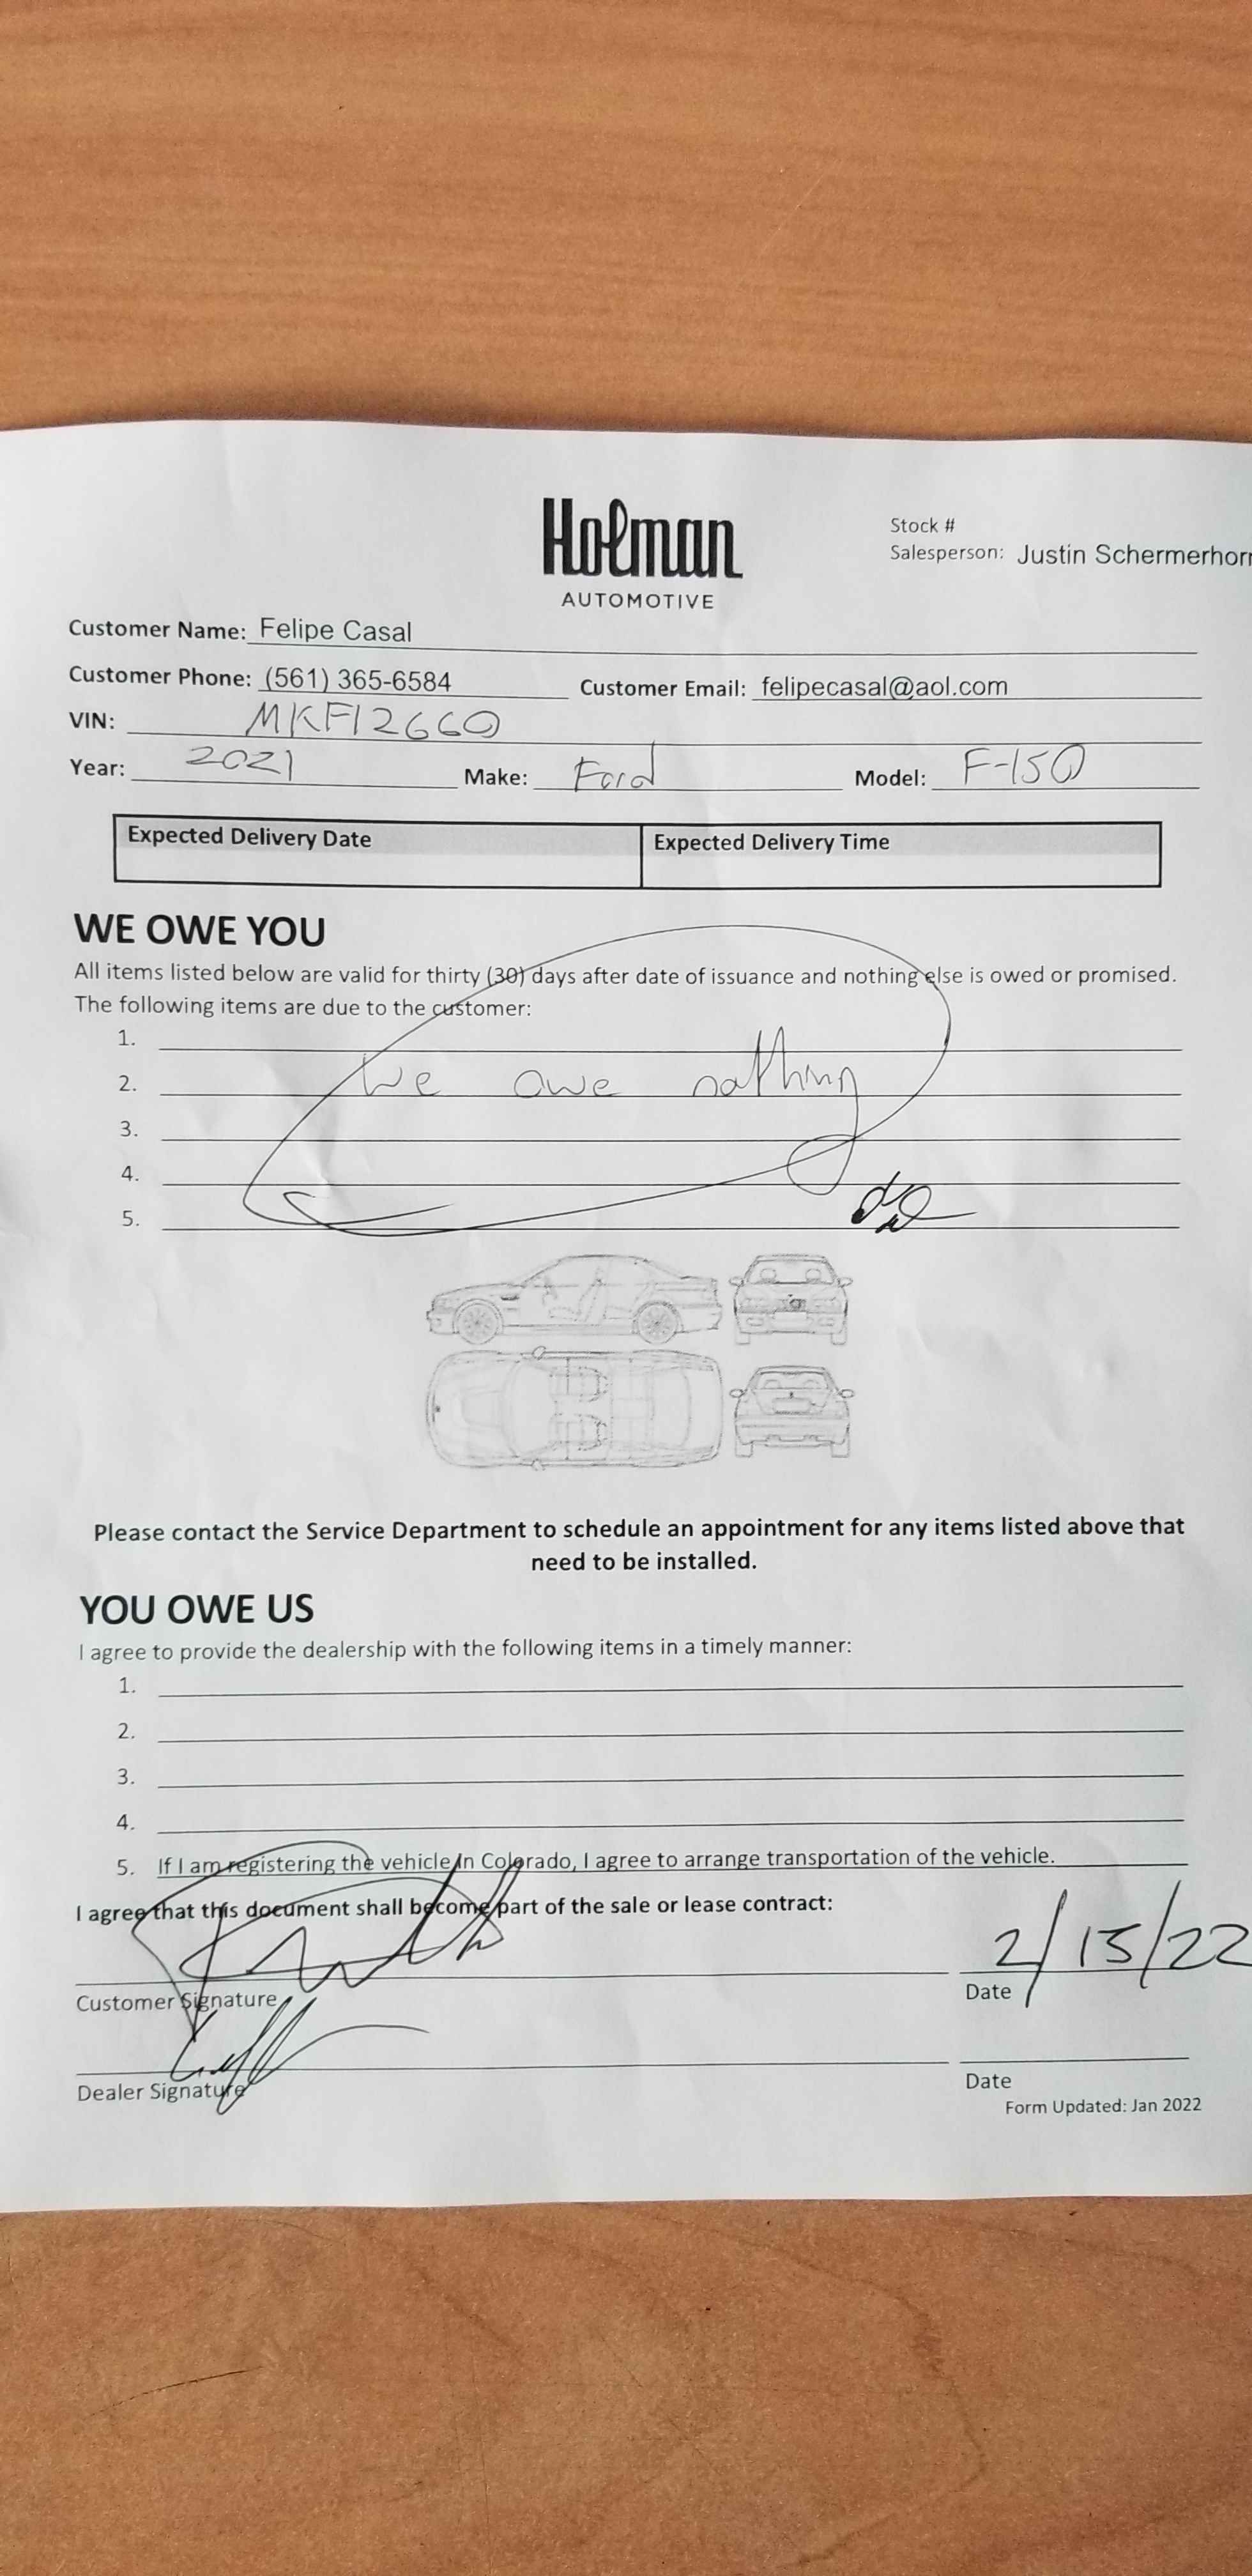 Holman
AUTOMOTIVE
Stock #
Salesperson: Justin Schermerhorn
Customer Name: Felipe Casal
Customer Phone: (561) 365-6584 Customer Email: felipecasal@aol.com
VIN: MKF12660
Year: 2021 Make: Ford Model: F-150
Expected Delivery Date Expected Delivery Time
WE OWE YOU
All items listed below are valid for thirty (30) days after date of issuance and nothing else is owed or promised.
The following items are due to the customer:
1.
2. We owe nothing
3.
4.
5.
Please contact the Service Department to schedule an appointment for any items listed above that
need to be installed.
YOU OWE US
I agree to provide the dealership with the following items in a timely manner:
1.
2.
3.
4.
5. If I am registering the vehicle in Colorado, I agree to arrange transportation of the vehicle.
I agree that this document shall become part of the sale or lease contract:
2/15/22
Customer Signature Date
Dealer Signature Date
Form Updated: Jan 2022